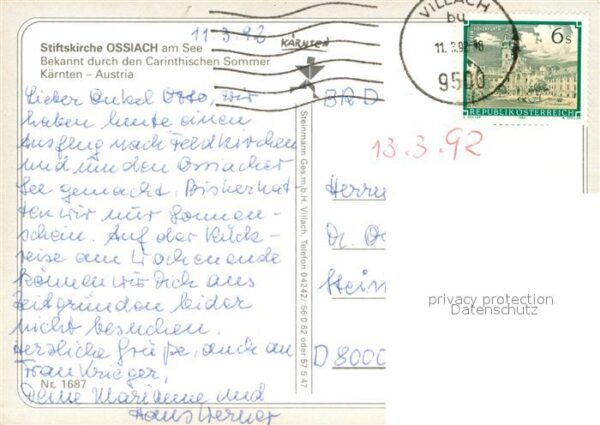 11.3.92
Stiftskirche OSSIACH am See
Bekannt durch den Carinthischen Sommer
Kärnten – Austria
Lieber Onkel Otto, wir
haben heute einen
Ausflug nach Feldkirchen
und um den Ossiacher
See gemacht. Bisher hat
ten wir nur Sonnen-
schein. Auf der Rück-
reise am Wochenende
können wir Dich aus
Zeitgründen leider
nicht besuchen.
Herzliche Grüße, auch an
Frau Krieger,
Deine Marianne und
Hans Werner
Nr. 1687
Steinmann Ges.m.b.H. Villach, Telefon 04242/56 0 62 oder 57 5 47
KÄRNTEN
VILLACH
11.3.92-18
9500
6 s
REPUBLIK ÖSTERREICH
BRD
13.3.92
Herrn
Dr. O
Stein
D 8000
privacy protection
Datenschutz